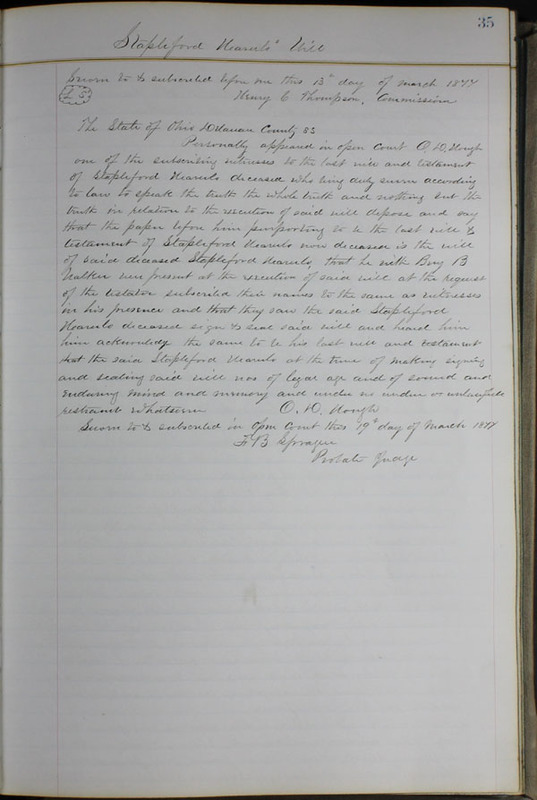 35
Stapleford Hearnls' Will
Sworn to & subscribed before me this 13th day of March 1877
L.S. Henry C Thompson, Commissioner
The State of Ohio Delaware County SS
Personally appeared in open Court O. D. Hough
one of the subscribing witnesses to the last will and testament
of Stapleford Hearnls deceased who being duly sworn according
to law to speak the truth the whole truth and nothing but the
truth in relation to the execution of said will depose and say
that the paper before him purporting to be the last will &
testament of Stapleford Hearnls now deceased is the will
of said deceased Stapleford Hearnls, that he with Benj B
were present at the execution of said will at the request
of the testator subscribed their names to the same as witnesses
in his presence and that they saw the said Stapleford
Hearnls deceased sign & seal said will and heard him
him acknowledge the same to be his last will and testament
that the said Stapleford Hearnls at the time of making signing
and sealing said will was of legal age and of sound and
mind and memory and under no undue or unlawful
restraint whatever O. D. Hough
Sworn to & subscribed in open Court this 19th day of March 1877
F B Sprague
Probate Judge